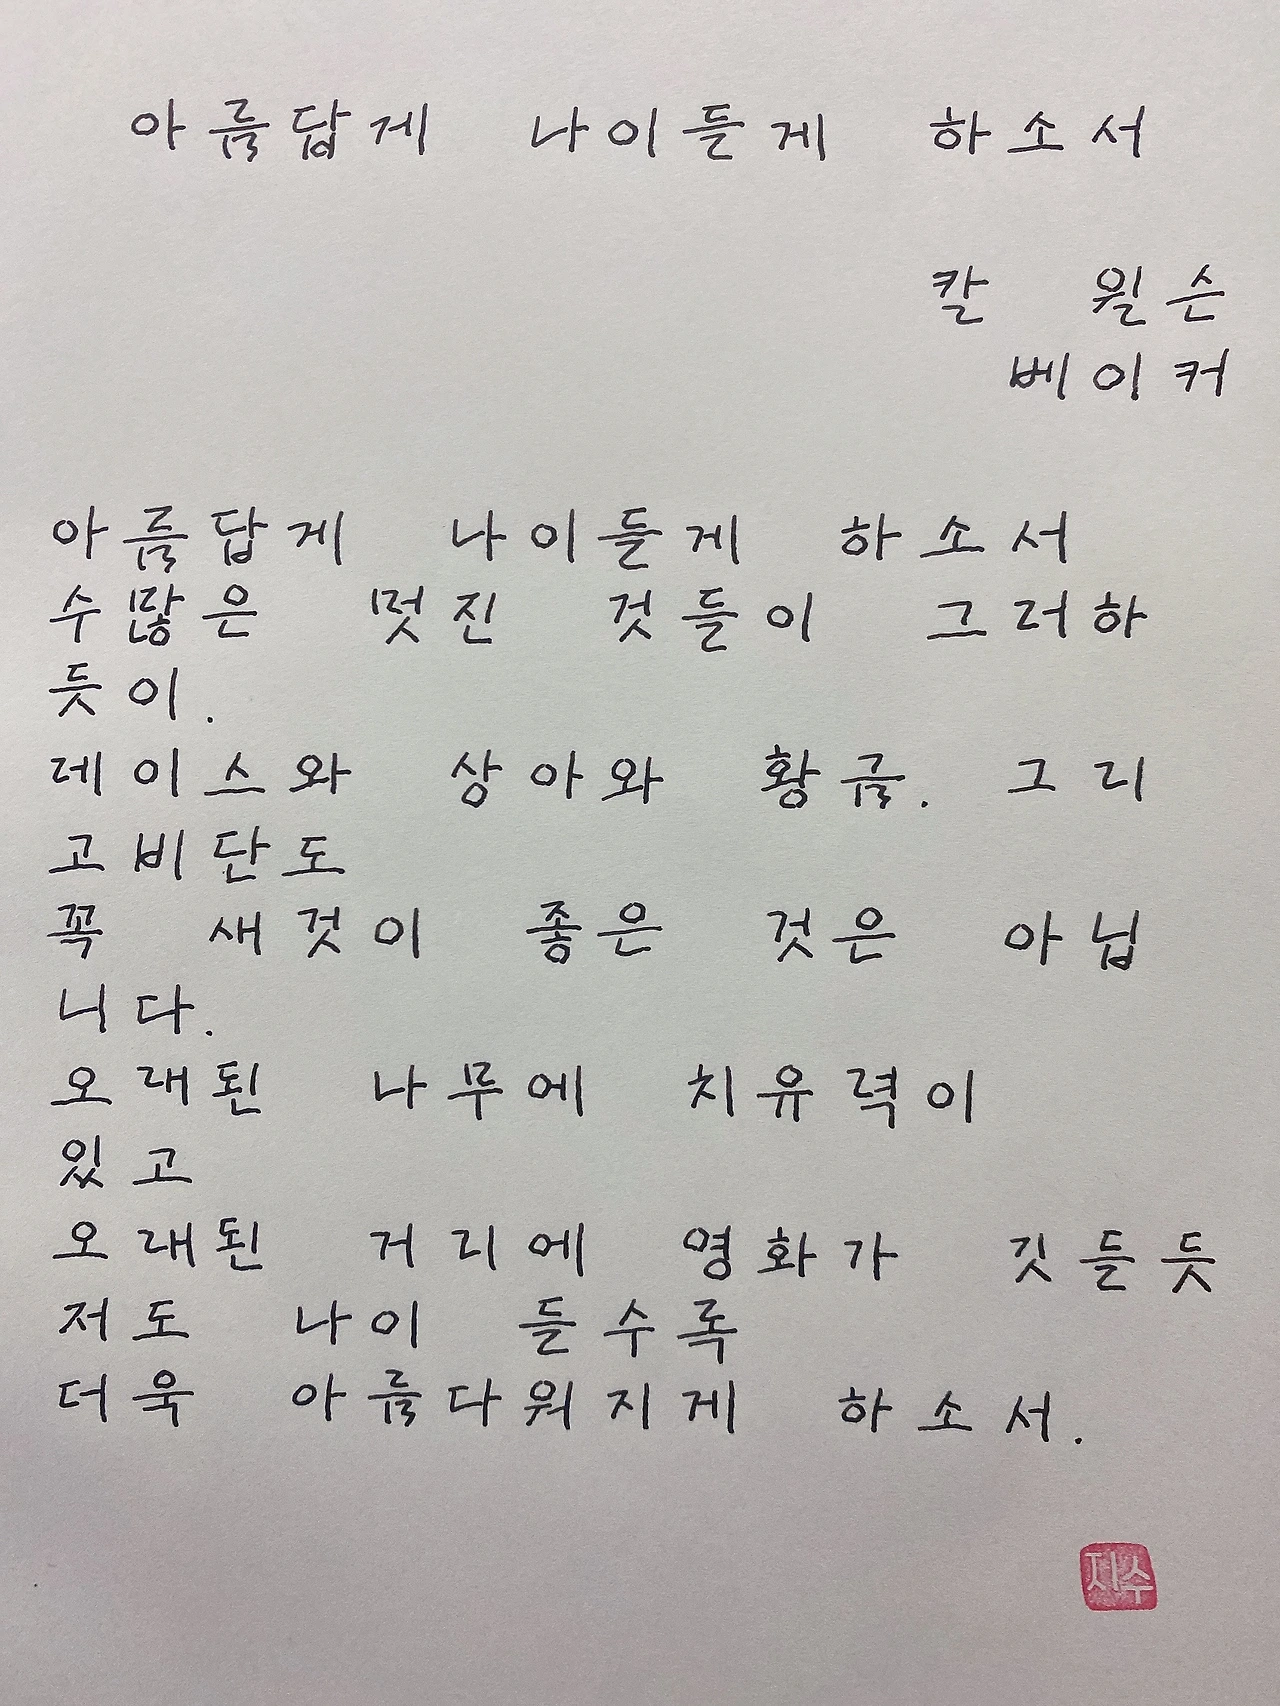 아름답게 나이들게 하소서
칼 윌슨
베이커
아름답게 나이들게 하소서
수많은 멋진 것들이 그러하
듯이.
레이스와 상아와 황금. 그리
고비단도
꼭 새것이 좋은 것은 아닙
니다.
오래된 나무에 치유력이
있고
오래된 거리에 영화가 깃들듯
저도 나이 들수록
더욱 아름다워지게 하소서.
자수